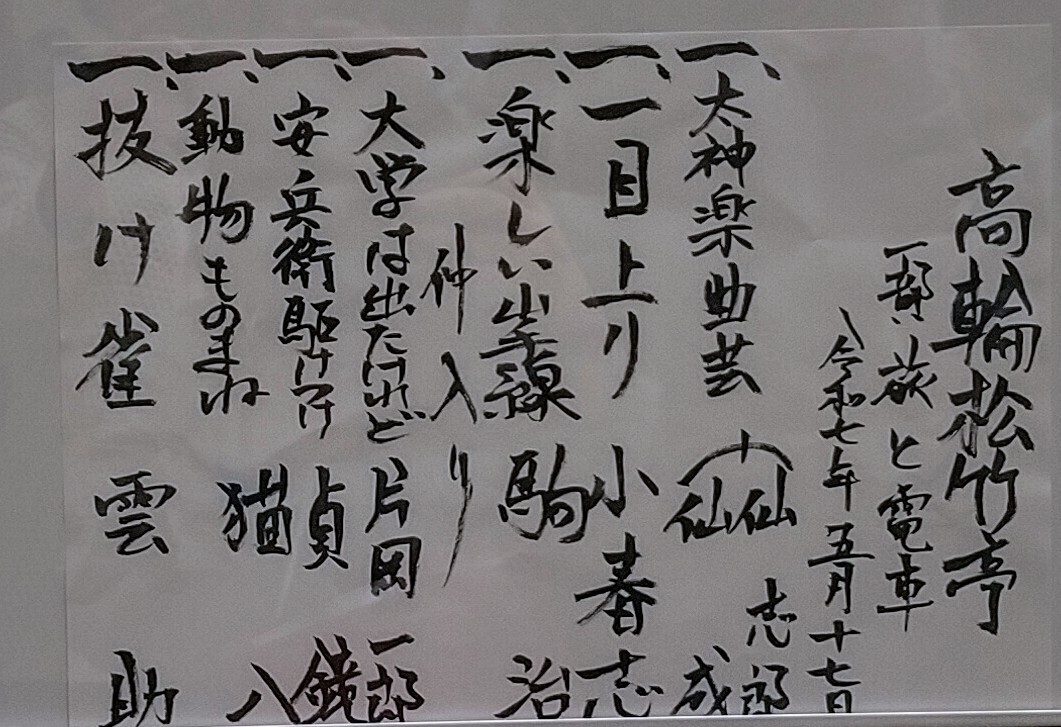 高輪松竹亭
一部、旅と電車
令和七年五月十七日
一、太神楽曲芸 仙志郎 仙成
一、一目上り 小春志
一、楽しい山手線 駒治
仲入り
一、大学は出たけれど 片岡一郎
一、安兵衛駆けつけ 貞鏡
一、動物ものまね 猫八
一、抜け雀 雲助